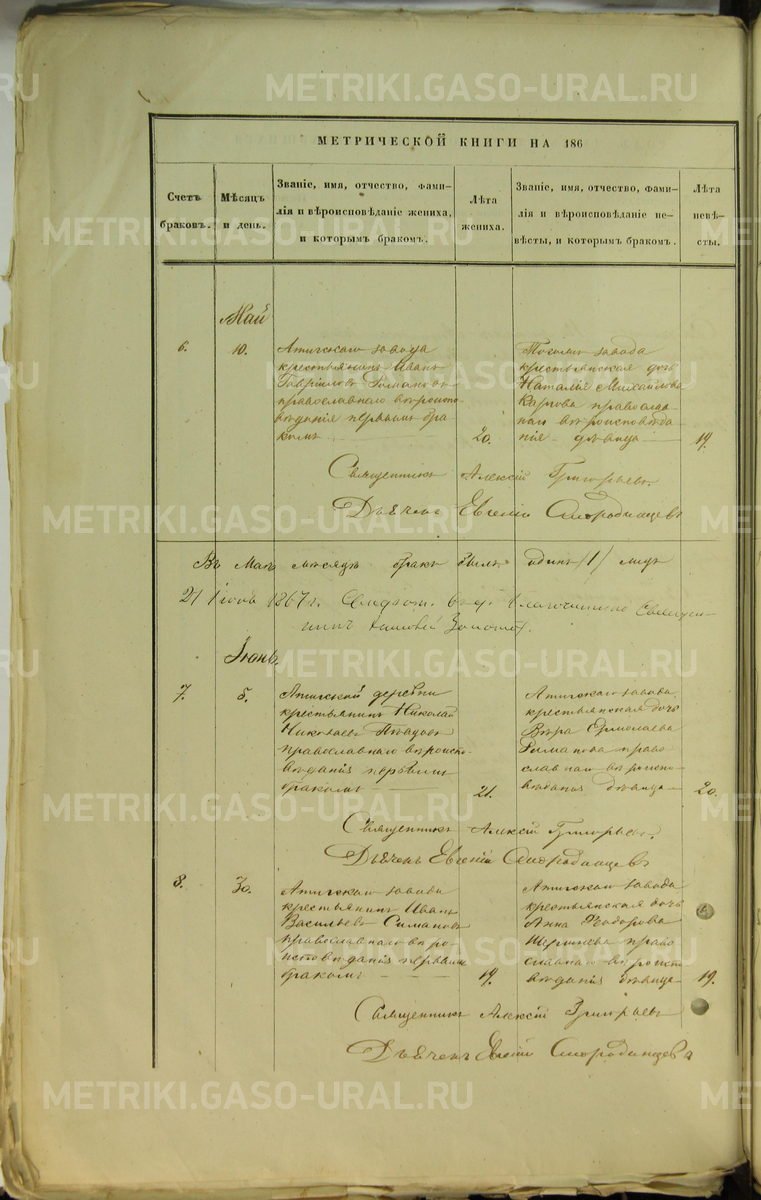 METRIKI.GASO-URAL.RU
МЕТРИЧЕСКОЙ КНИГИ НА 186
Счетъ браковъ.
Мѣсяцъ и день.
Званіе, имя, отчество, фами-
лія и вѣроисповѣданіе жениха,
и которымъ бракомъ.
Лѣта жениха.
Званіе, имя, отчество, фами-
лія и вѣроисповѣданіе не-
вѣсты, и которымъ бракомъ.
Лѣта невѣ-
сты.
Май
6.
10.
Атигскаго завода
крестьянинъ Иванъ
Гаврiиловъ Романовъ
православнаго вѣроиспо
вѣданія первымъ бра
комъ
20.
Тогожъ завода
крестьянская дочь
Наталія Михайлова
Карпова православ
наго вѣроисповѣда
нія дѣвица
19.
Священникъ Алексій Григорьевъ.
Дьячекъ Евгеній Смородинцевъ
Въ Маѣ мѣсяцѣ бракъ былъ одинъ (1) лицъ
21 Іюня 1867 г. Благочинный Священ
никъ
Іюнь.
7.
5.
Атигской деревни
крестьянинъ Николай
Николаевъ
православнаго вѣроиспо
вѣданія первымъ
бракомъ
21.
Атигскаго завода
крестьянская дочь
Вѣра Ермолаева
Романова право
славнаго вѣроиспо
вѣданія дѣвица
20.
Священникъ Алексій Григорьевъ.
Дьячекъ Евгеній Смородинцевъ
8.
30.
Атигскаго завода
крестьянинъ Иванъ
Васильевъ Симановъ
православнаго вѣро
исповѣданія первымъ
бракомъ
19.
Атигскаго завода
крестьянская дочь
Анна Ѳедорова
право
славнаго вѣроиспо
вѣданія дѣвица
19.
Священникъ Алексій Григорьевъ
Дьячекъ Евгеній Смородинцевъ